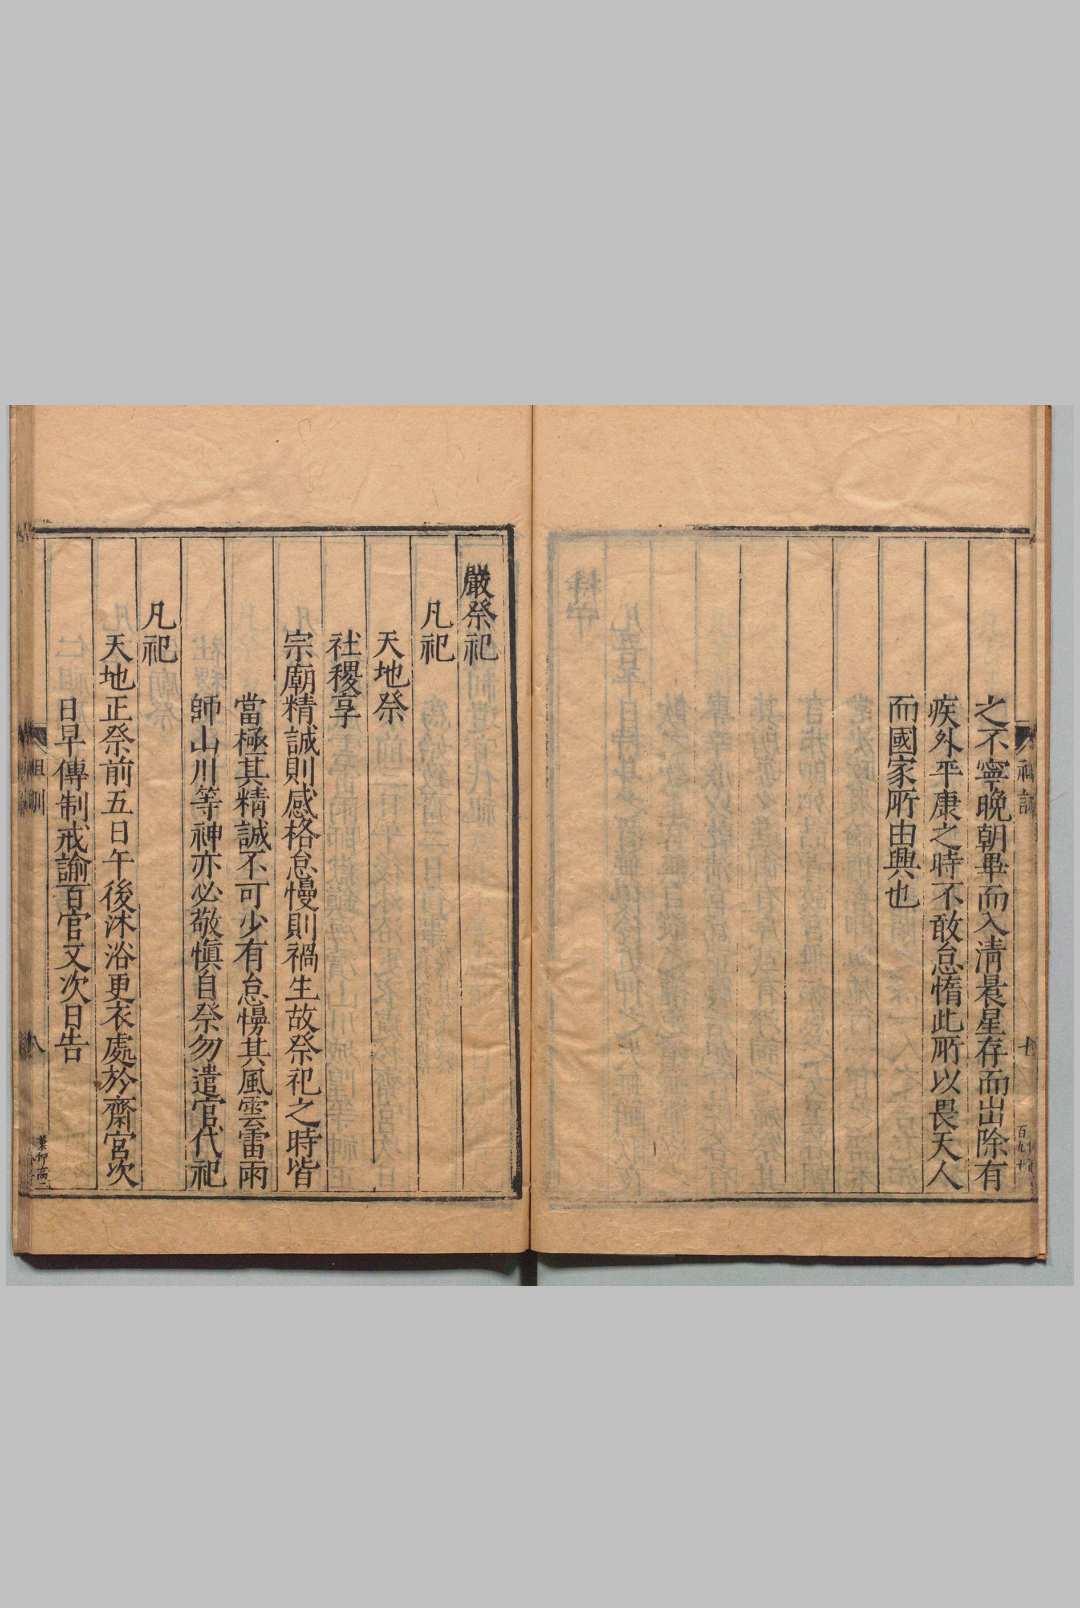 之不寧晚朝畢而入清晨星存而出除有
疾外平康之時不敢怠惰此所以畏天人
而國家所由興也
嚴祭祀
凡祀
天地祭
社稷享
宗廟精誠則感格怠慢則禍生故祭祀之時皆
當極其精誠不可少有怠慢其風雲雷雨
師山川等神亦必敬慎自祭勿遣官代祀
凡祀
天地正祭前五日午後沐浴更衣處於齋宮次
日早傳制戒諭百官文次日告
祖訓
八